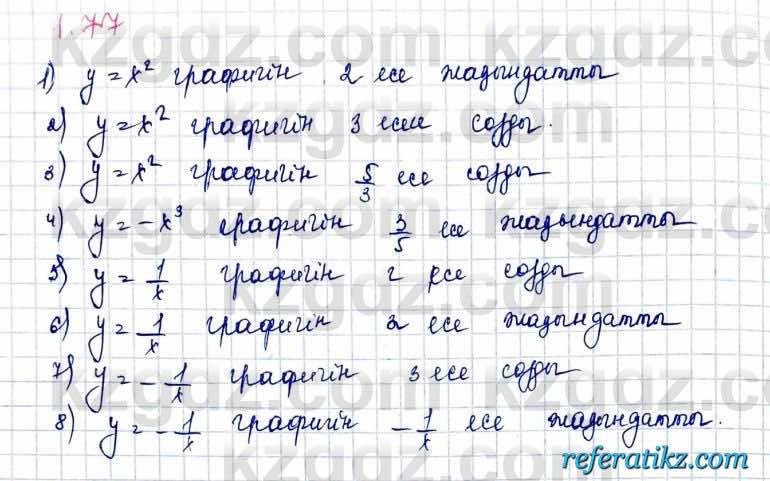 1.77
1) y = x² графигін 2 есе жазындатты
2) y = x² графигін 3 есе созды.
3) y = x² графигін 5/3 есе созды
4) y = -x³ графигін 3/5 есе жазындатты
5) y = 1/x графигін 2 есе созды
6) y = 1/x графигін 2 есе жазындатты
7) y = -1/x графигін 3 есе созды
8) y = -1/x графигін -1/x есе жазындатты.
kzgdz.com
referatikz.com